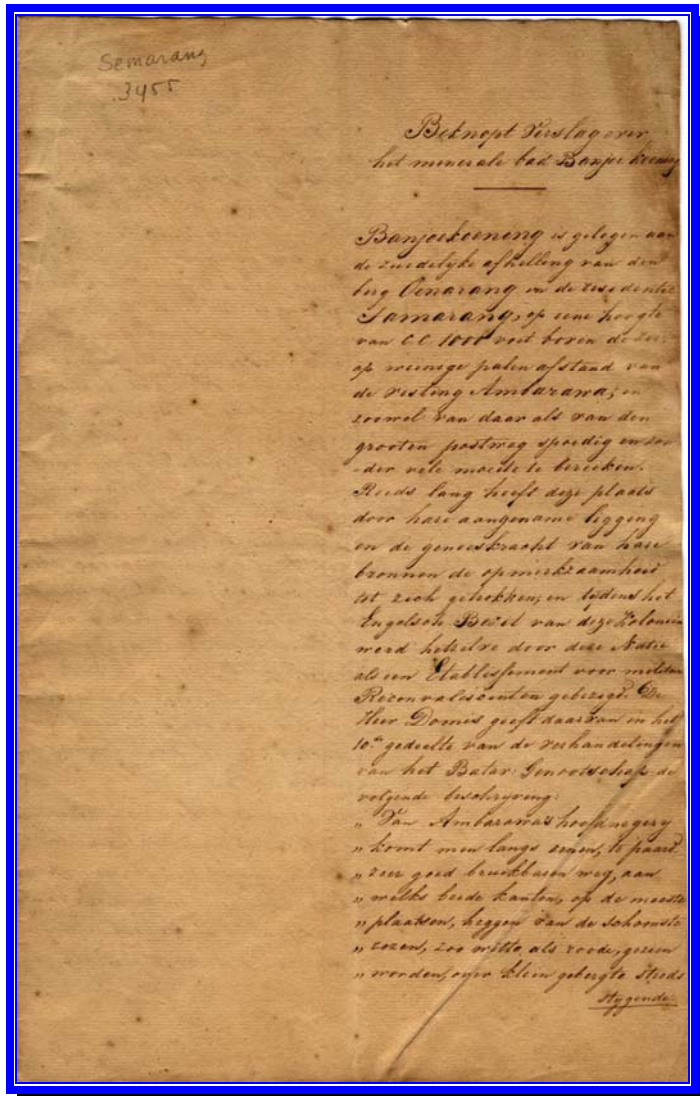 Semarang
3455
Beknopt Verslag over
het minerale bad Banjoe
Banjoekoening is gelegen aan
de zuidelyke afhelling van den
berg Oenarang in de residentie
Samarang, op eene hoogte
van CC 1000 voet boven de zee,
op weinige palen afstand van
de vesting Ambarawa; en
zoowel van daar als van den
grooten postweg spoedig en zon
-der vele moeite te bereiken.
Reeds lang heeft deze plaats
door hare aangename ligging
en de geneeskracht van hare
bronnen de opmerkzaamheid
tot zich getrokken; en tydens het
Engelsch Bezit van deze Kolonien
werd hetzelve door deze Natie
als een Etablissement voor militair
Reconvalescenten gebezigd. De
Heer Domis geeft daarvan in het
10de gedeelte van de verhandelingen
van het Batav: Genootschap de
volgende beschryving:
„ Van Ambarawa's hoofdnegery
„ komt men langs eenen, te paard
„ zeer goed bruikbaren weg, aan
„ welks beide kanten, op de meeste
„ plaatsen, heggen van de schoonste
„ rozen, zoo witte als roode, gezien
„ worden, over klein gebergte steeds
stygende